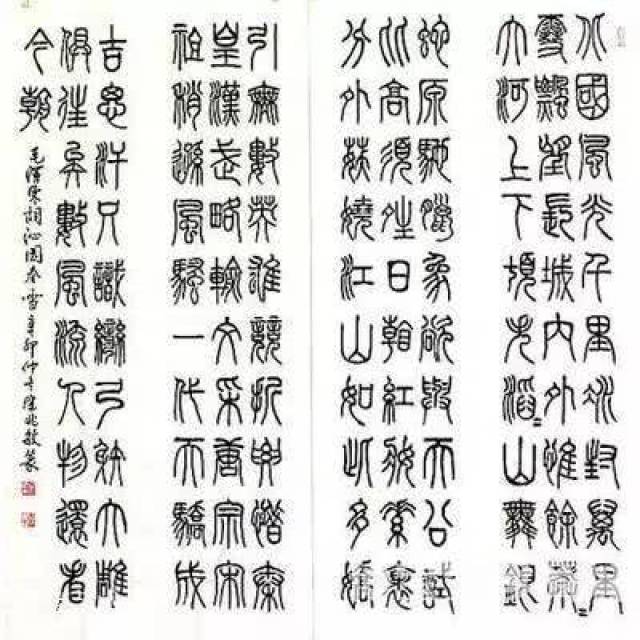 北國風光千里冰封萬里
雪飄望長城內外惟餘莽〻
大河上下頓失滔〻山舞銀
蛇原馳蠟象欲與天公試
比高須晴日看紅妝素裹
分外妖嬈江山如此多嬌
引無數英雄競折腰惜秦
皇漢武略輸文采唐宗宋
祖稍遜風騷一代天驕成
吉思汗只識彎弓射大雕
俱往矣數風流人物還看
今朝
毛澤東詞沁園春雪辛卯仲兆敏篆